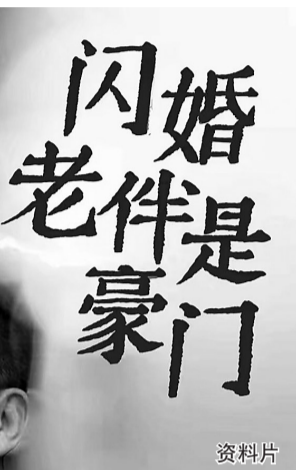 闪婚
老伴是
豪门
资料片